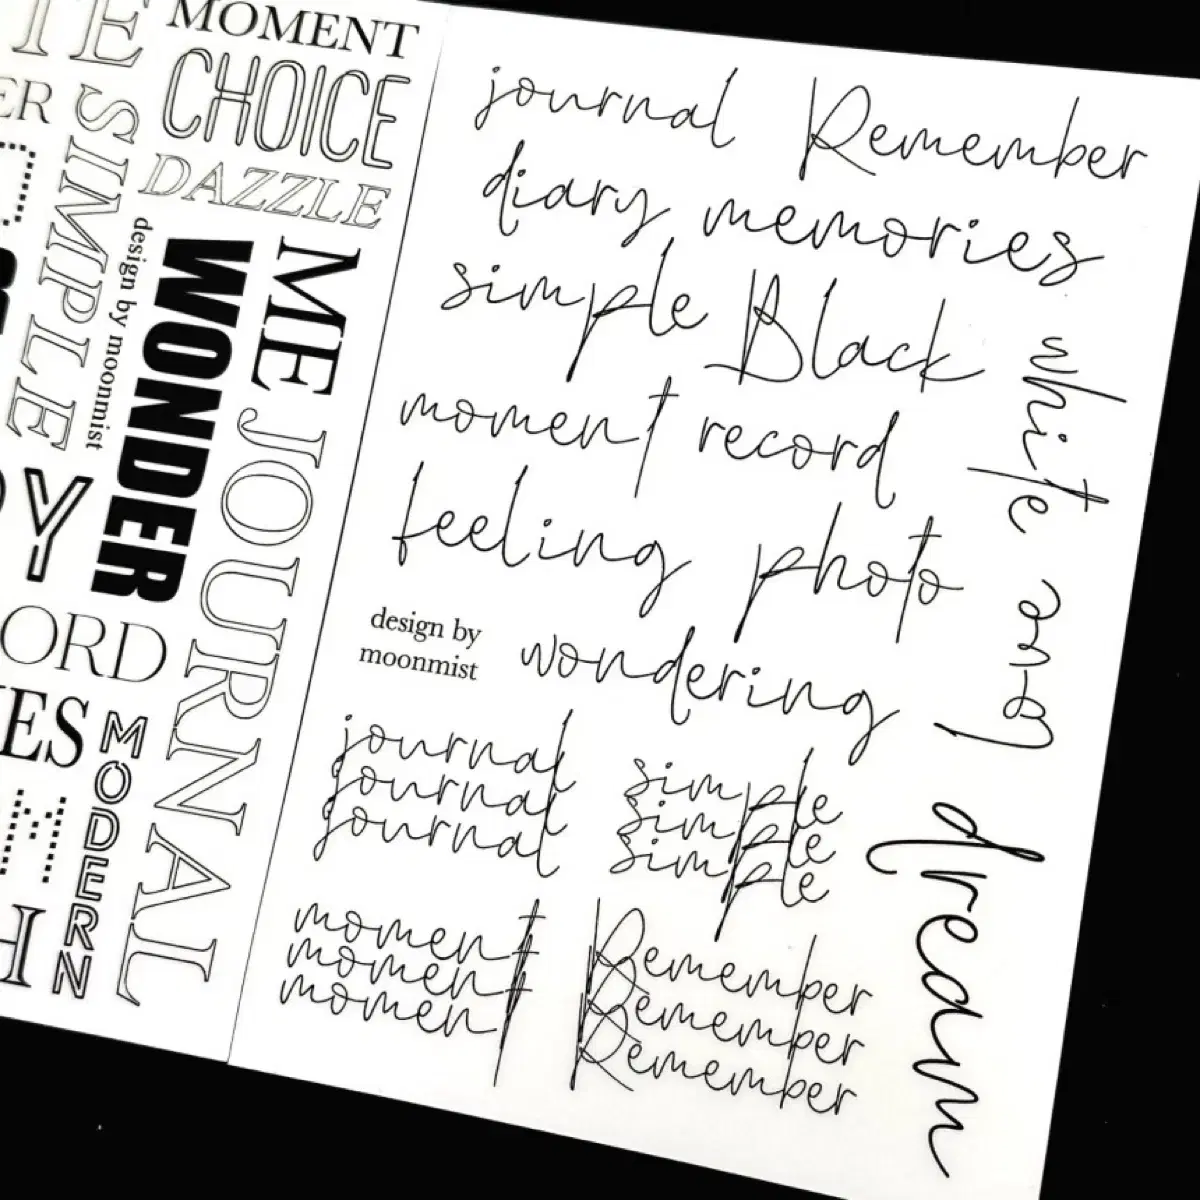 MOMENT
CHOICE
DAZZLE
SIMPLE
design by moonmist
WONDER
ME
JOURNAL
MODERN
journal Remember
diary memories
simple Black
white
moment record
feeling photo
and
love
design by
moonmist
wondering
journal
journal
journal
simple
simple
simple
dream
moment
moment
moment
Remember
Remember
Remember